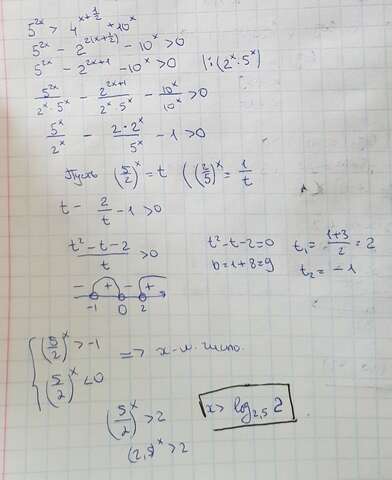 5^{2x} > 4^{x+\frac{1}{2}} + 10^x
5^{2x} - 2^{2(x+\frac{1}{2})} - 10^x > 0
5^{2x} - 2^{2x+1} - 10^x > 0 |:(2^x·5^x)
\frac{5^{2x}}{2^x·5^x} - \frac{2^{2x+1}}{2^x·5^x} - \frac{10^x}{10^x} > 0
\frac{5^x}{2^x} - \frac{2·2^x}{5^x} - 1 > 0
Пусть (\frac{5}{2})^x = t ((\frac{2}{5})^x = \frac{1}{t}
t - \frac{2}{t} - 1 > 0
\frac{t^2 - t - 2}{t} > 0 t^2 - t - 2 = 0 t_1 = \frac{1+3}{2} = 2
D = 1 + 8 = 9 t_2 = -1
- + - +
-1 0 2
{ (\frac{5}{2})^x > -1
(\frac{5}{2})^x < 0 => x - л. число.
(\frac{5}{2})^x > 2 x > log_{2,5} 2
(2,5)^x > 2